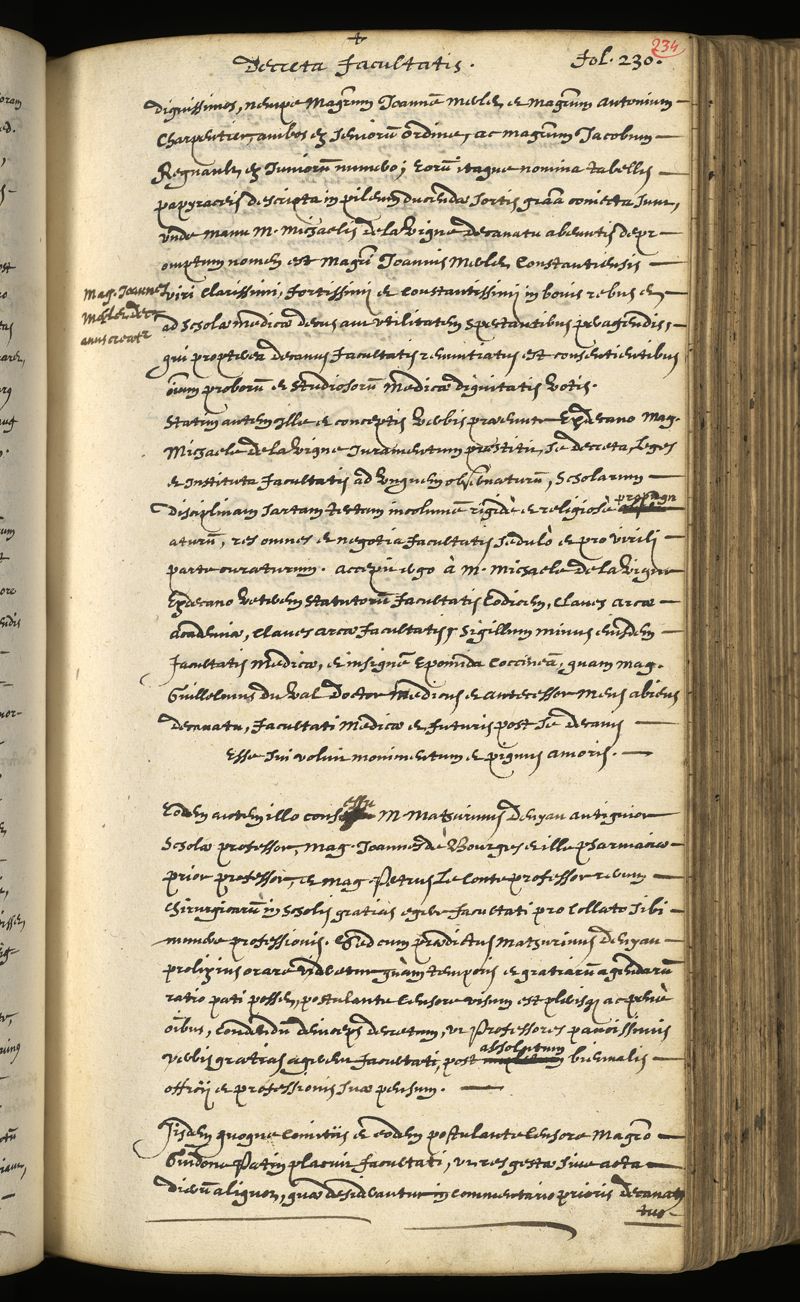 Decreta Facultatis.
Fol. 230.
234
dignissimos, nempe Magrum Joannē Merlet et Magrum Antonium
Charpentier, ambos ex seniorū ordine, ac magrum Jacobum
Regnault ex Juniorū numero; eorū itaque nomina tabellis
papyraceis descripta in pileum ducendæ sortis graā coniecta sunt,
vnde manu M. Michaelis de la Vigne decanatu abeuntis depr-
omptum nomen est Magri Joannis Merlet Constantiensis
Mag. Joannes
Merlet dec-
anus creatur
viri clarissimi, fortissimi et constantissimi in bonis rebus et
ad scholæ medicæ decus aut vtilitatem spectantibus peragendis,
qui propterea decanus facultatis renuntiatus est consentientibus
oīum proborū et studiosorū Medicæ dignitatis votis.
Statim autem ille et conceptis verbis præeunte Exdecano Mag.
Michaele de la Vigne Juramentum præstitit, se decreta, leges
et Instituta facultatis ad vnguem observaturū, scholarum
disciplinam sartam tectam incolumē rigidè et religiosè propugn
aturū, res omnes et negotia facultatis sedulò et pro virili
parte curaturum. accepit ergo à M. Michaele de la Vigne
Exdecano veterem statutorū facultatis codicem, claves arcæ
Academiæ, claves arcæ facultatis, sigillum minus eiusdem
facultatis Medicæ, et insignē Epomida coccineā, quam Mag.
Guillelmus du Val Doctor medicus et antecessor meus abiens
decanatu, facultati Medicæ et futuris post se decanis
esse sui voluit monimentum et pignus amoris.
Eodem autem illo consessu M. Mathurinus Denyau antiquior
Scholæ professor, Mag. Joannes de Bourges et ille pharmaciæ
prior professor, et Mag. Petrus Le Conte professor rerum
Chirurgicarū in Scholis gratias egere facultati pro collato sibi
munere professionis. Sed cum prædictus Mathurinus Denyau
prolixius orare videretur quàm temporis et gratiarū agendarū
ratio pati posset, postulante censore visum est plerisq ac penè
oībus, condendū deinceps decretum, vt Professores paucissimis
verbis gratias agerent facultati, post absolutum biennalis
officii et professionis suæ pensum.
Jisdem quoque comitiis et eodem postulante censore Magro
Guidone Patin placuit facultati, vt res gestæ siue acta
dierū aliquot, quæ desiderantur in commentario prioris decanat
tus